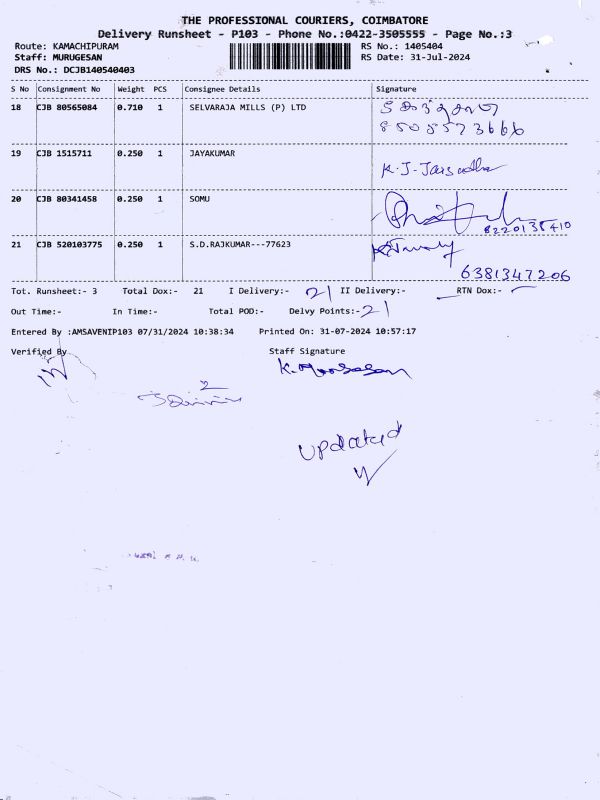 THE PROFESSIONAL COURIERS, COIMBATORE
Delivery Runsheet - P103 - Phone No.:0422-3505555 - Page No.:3
Route: KAMACHIPURAM RS No.: 1405404
Staff: MURUGESAN RS Date: 31-Jul-2024
DRS No.: DCJB140540403
S No Consignment No Weight PCS Consignee Details Signature
18 CJB 80565084 0.710 1 SELVARAJA MILLS (P) LTD
19 CJB 1515711 0.250 1 JAYAKUMAR
20 CJB 80341458 0.250 1 SOMU
21 CJB 520103775 0.250 1 S.D.RAJKUMAR---77623
6381347206
Tot. Runsheet:- 3 Total Dox:- 21 I Delivery:- 21 II Delivery:- RTN Dox:-
Out Time:- In Time:- Total POD:- Delvy Points:- 21
Entered By :AMSAVENIP103 07/31/2024 10:38:34 Printed On: 31-07-2024 10:57:17
Verified By Staff Signature
updated